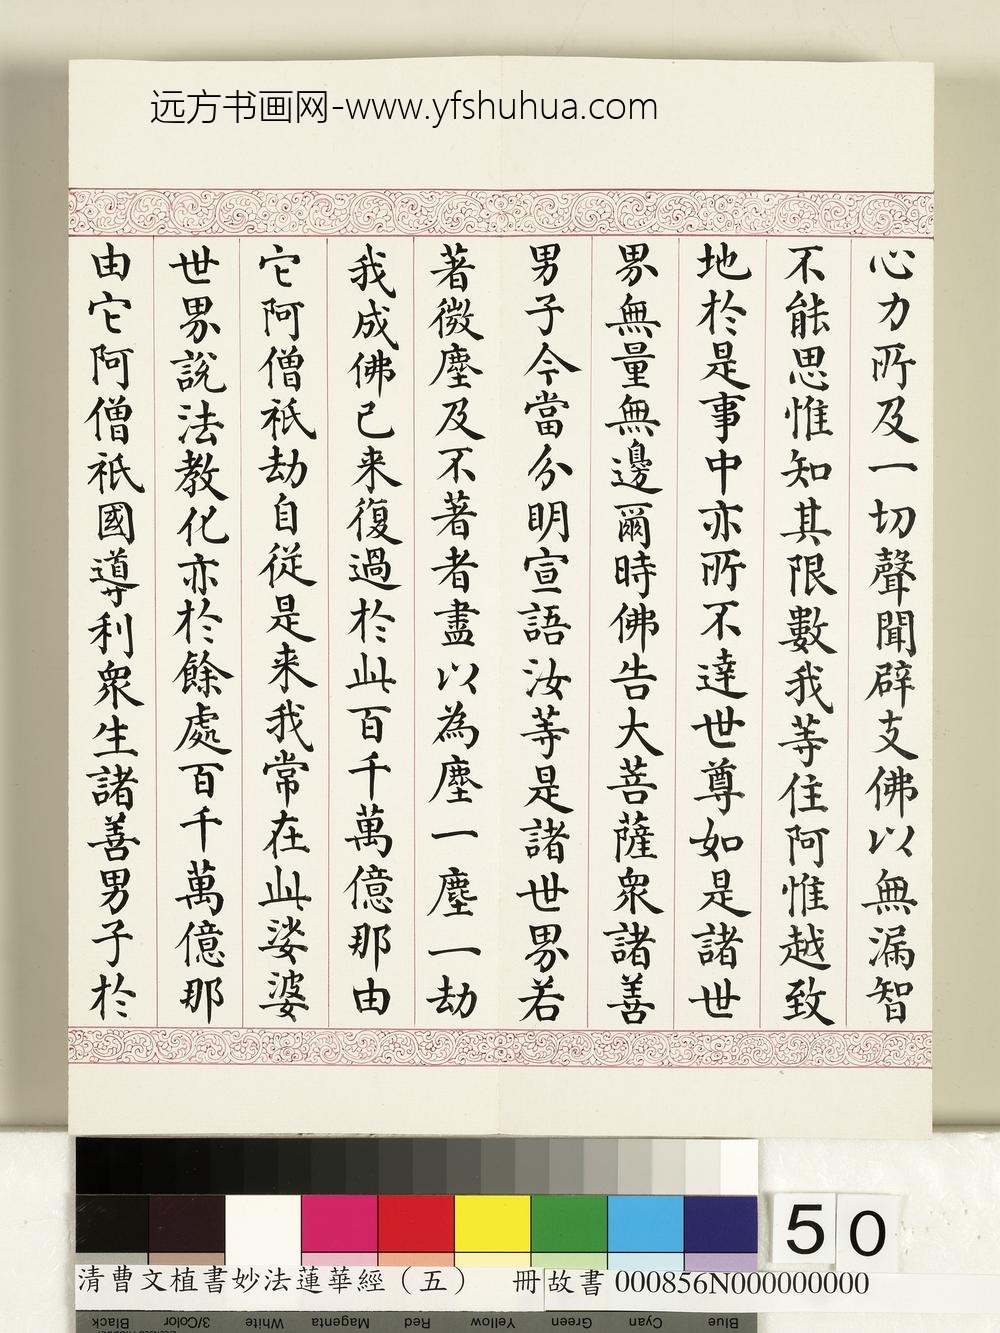 远方书画网-www.yfshuhua.com
心力所及一切聲聞辟支佛以無漏智
不能思惟知其限數我等住阿惟越致
地於是事中亦所不達世尊如是諸世
界無量無邊爾時佛告大菩薩衆諸善
男子今當分明宣語汝等是諸世界若
著微塵及不著者盡以為塵一塵一劫
我成佛已来復過於此百千萬億那由
它阿僧祇劫自從是来我常在此娑婆
世界說法教化亦於餘處百千萬億那
由它阿僧祇國導利衆生諸善男子於
50
清曹文植書妙法蓮華經（五） 冊 故書 000856N000000000
Black 3/Color White Magenta Red Yellow Green Cyan Blue